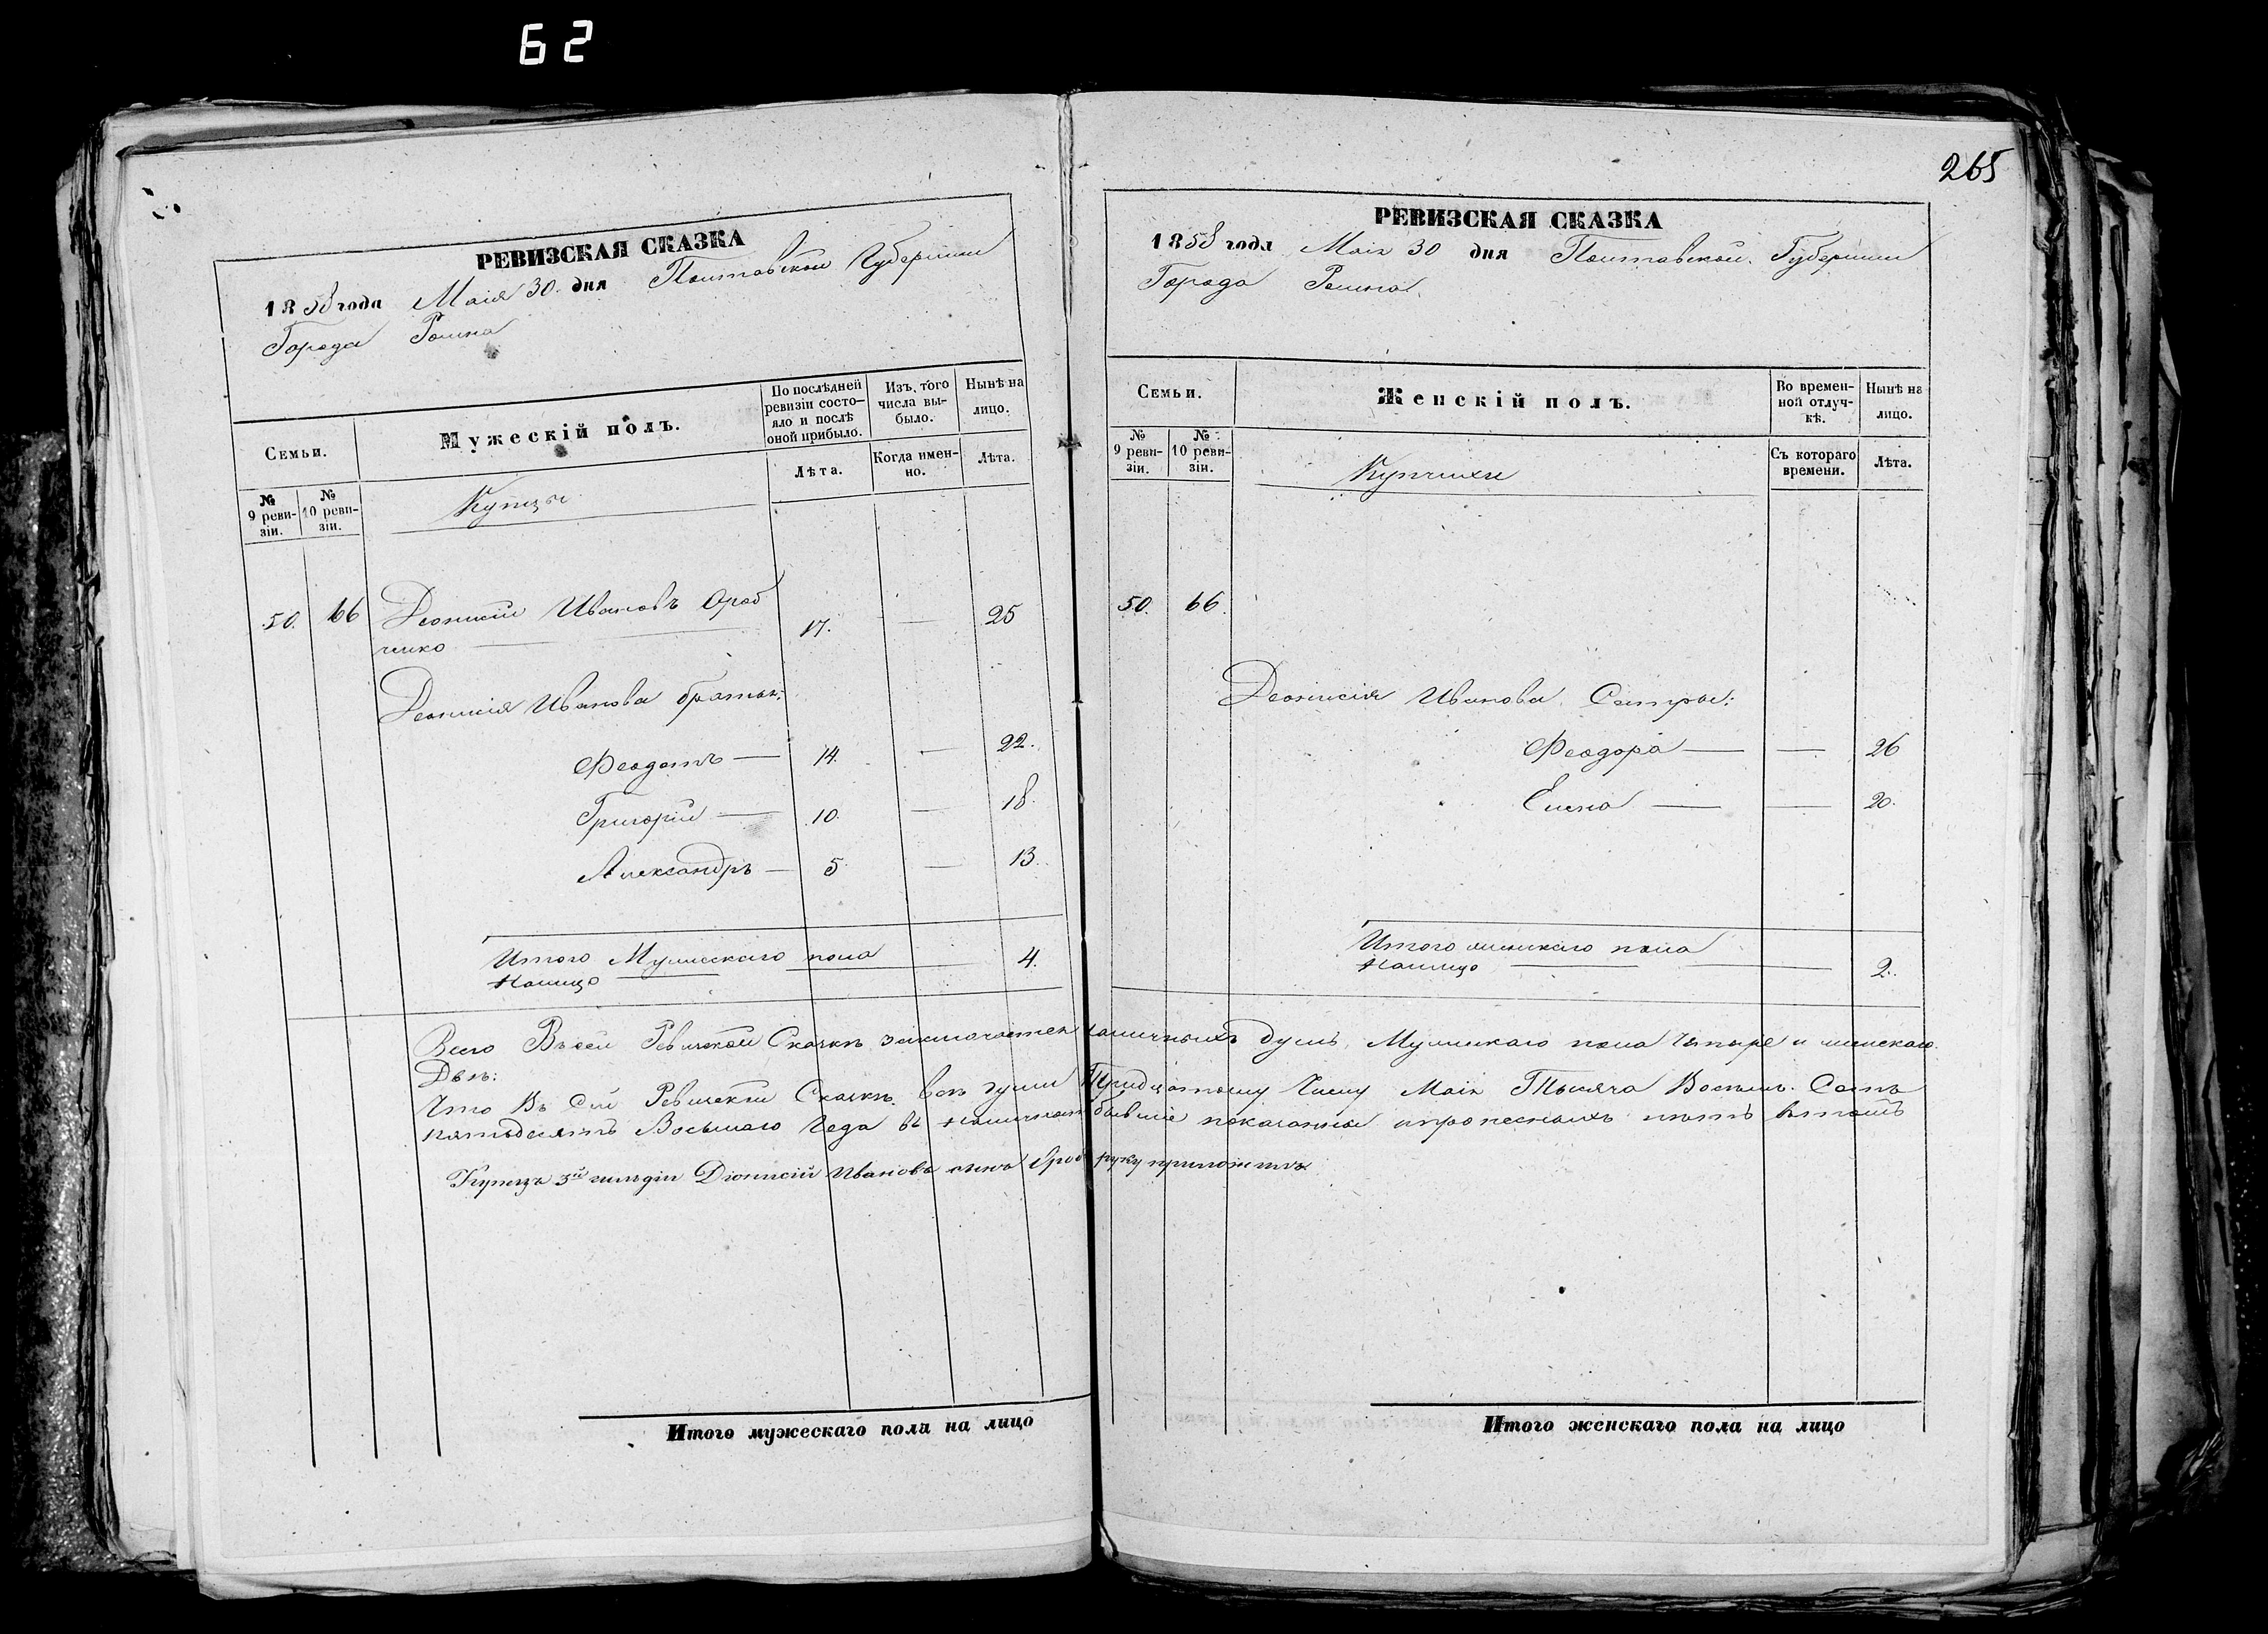 62
265
РЕВИЗСКАЯ СКАЗКА
1858 года Маія 30 дня Полтавской Губерніи
Города Ромна
Семьи.
Мужескій полъ.
По послѣдней ревизіи состо-
яло и послѣ оной прибыло.
Изъ того числа вы-
было.
Нынѣ на лицо.
№ 9 реви-
зіи.
№ 10 реви-
зіи.
Лѣта.
Когда имен-
но.
Лѣта.
Купцы
50. 66 Деонисій Ивановъ Ороб 17. — 25
ченко
Деонисія Иванова братья:
Феодотъ — 14. — 22.
Григорій — 10. — 18.
Александръ — 5 — 13.
Итого Мужескаго пола
налицо — 4.
РЕВИЗСКАЯ СКАЗКА
1858 года Маія 30 дня Полтавской Губерніи
Города Ромна
Семьи.
Женскій полъ.
Во времен-
ной отлуч-
кѣ.
Нынѣ на лицо.
№ 9 реви-
зіи.
№ 10 реви-
зіи.
Съ котораго времени.
Лѣта.
Купчихи
50. 66.
Деонисія Иванова Сестры:
Феодора — — 26
Елена — — 20.
Итого женскаго пола
налицо — 2.
Всего Въ сей Ревизской Сказкѣ заключается наличныхъ душъ, Мужескаго пола Четыре и женскаго
Двѣ:
Что Въ Сей Ревизской Сказкѣ всѣ души Тридцатому Числу Маія Тысяча Восемь Сотъ
пятьдесятъ Восьмаго Года въ наличности бывшіе показанны и пропускныхъ нѣтъ въ томъ
Купецъ 3й гильдіи Діонисій Ивановъ сынъ руку приложилъ
Итого мужескаго пола на лицо
Итого женскаго пола на лицо